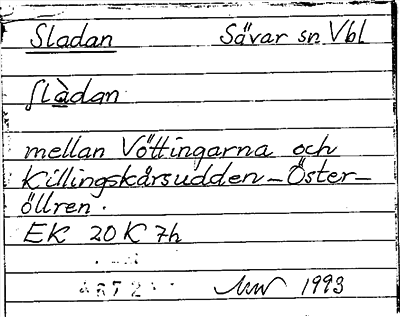 Sladan Sävar sn Vbl
slàdan
mellan Vöttingarna och
Killingskårsudden - Öster-
öllren.
EK 20 K 7h
1993